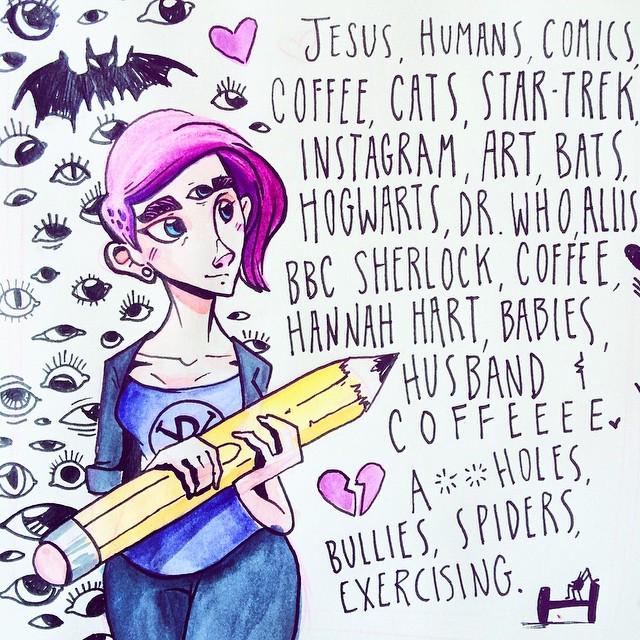 JESUS, HUMANS, COMICS,
COFFEE, CATS, STAR-TREK,
INSTAGRAM, ART, BATS,
HOGWARTS, DR. WHO,
BBC SHERLOCK, COFFEE,
HANNAH HART, BABIES,
HUSBAND &
COFFEEEE
A**HOLES,
BULLIES, SPIDERS,
EXERCISING.